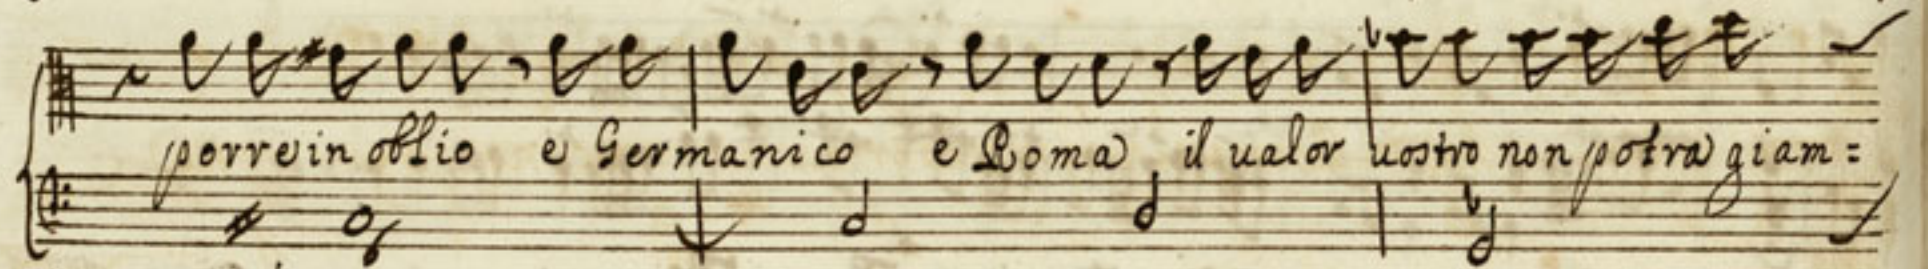 porre in oblio e Germanico e Roma il ualor uostro non potra giam=